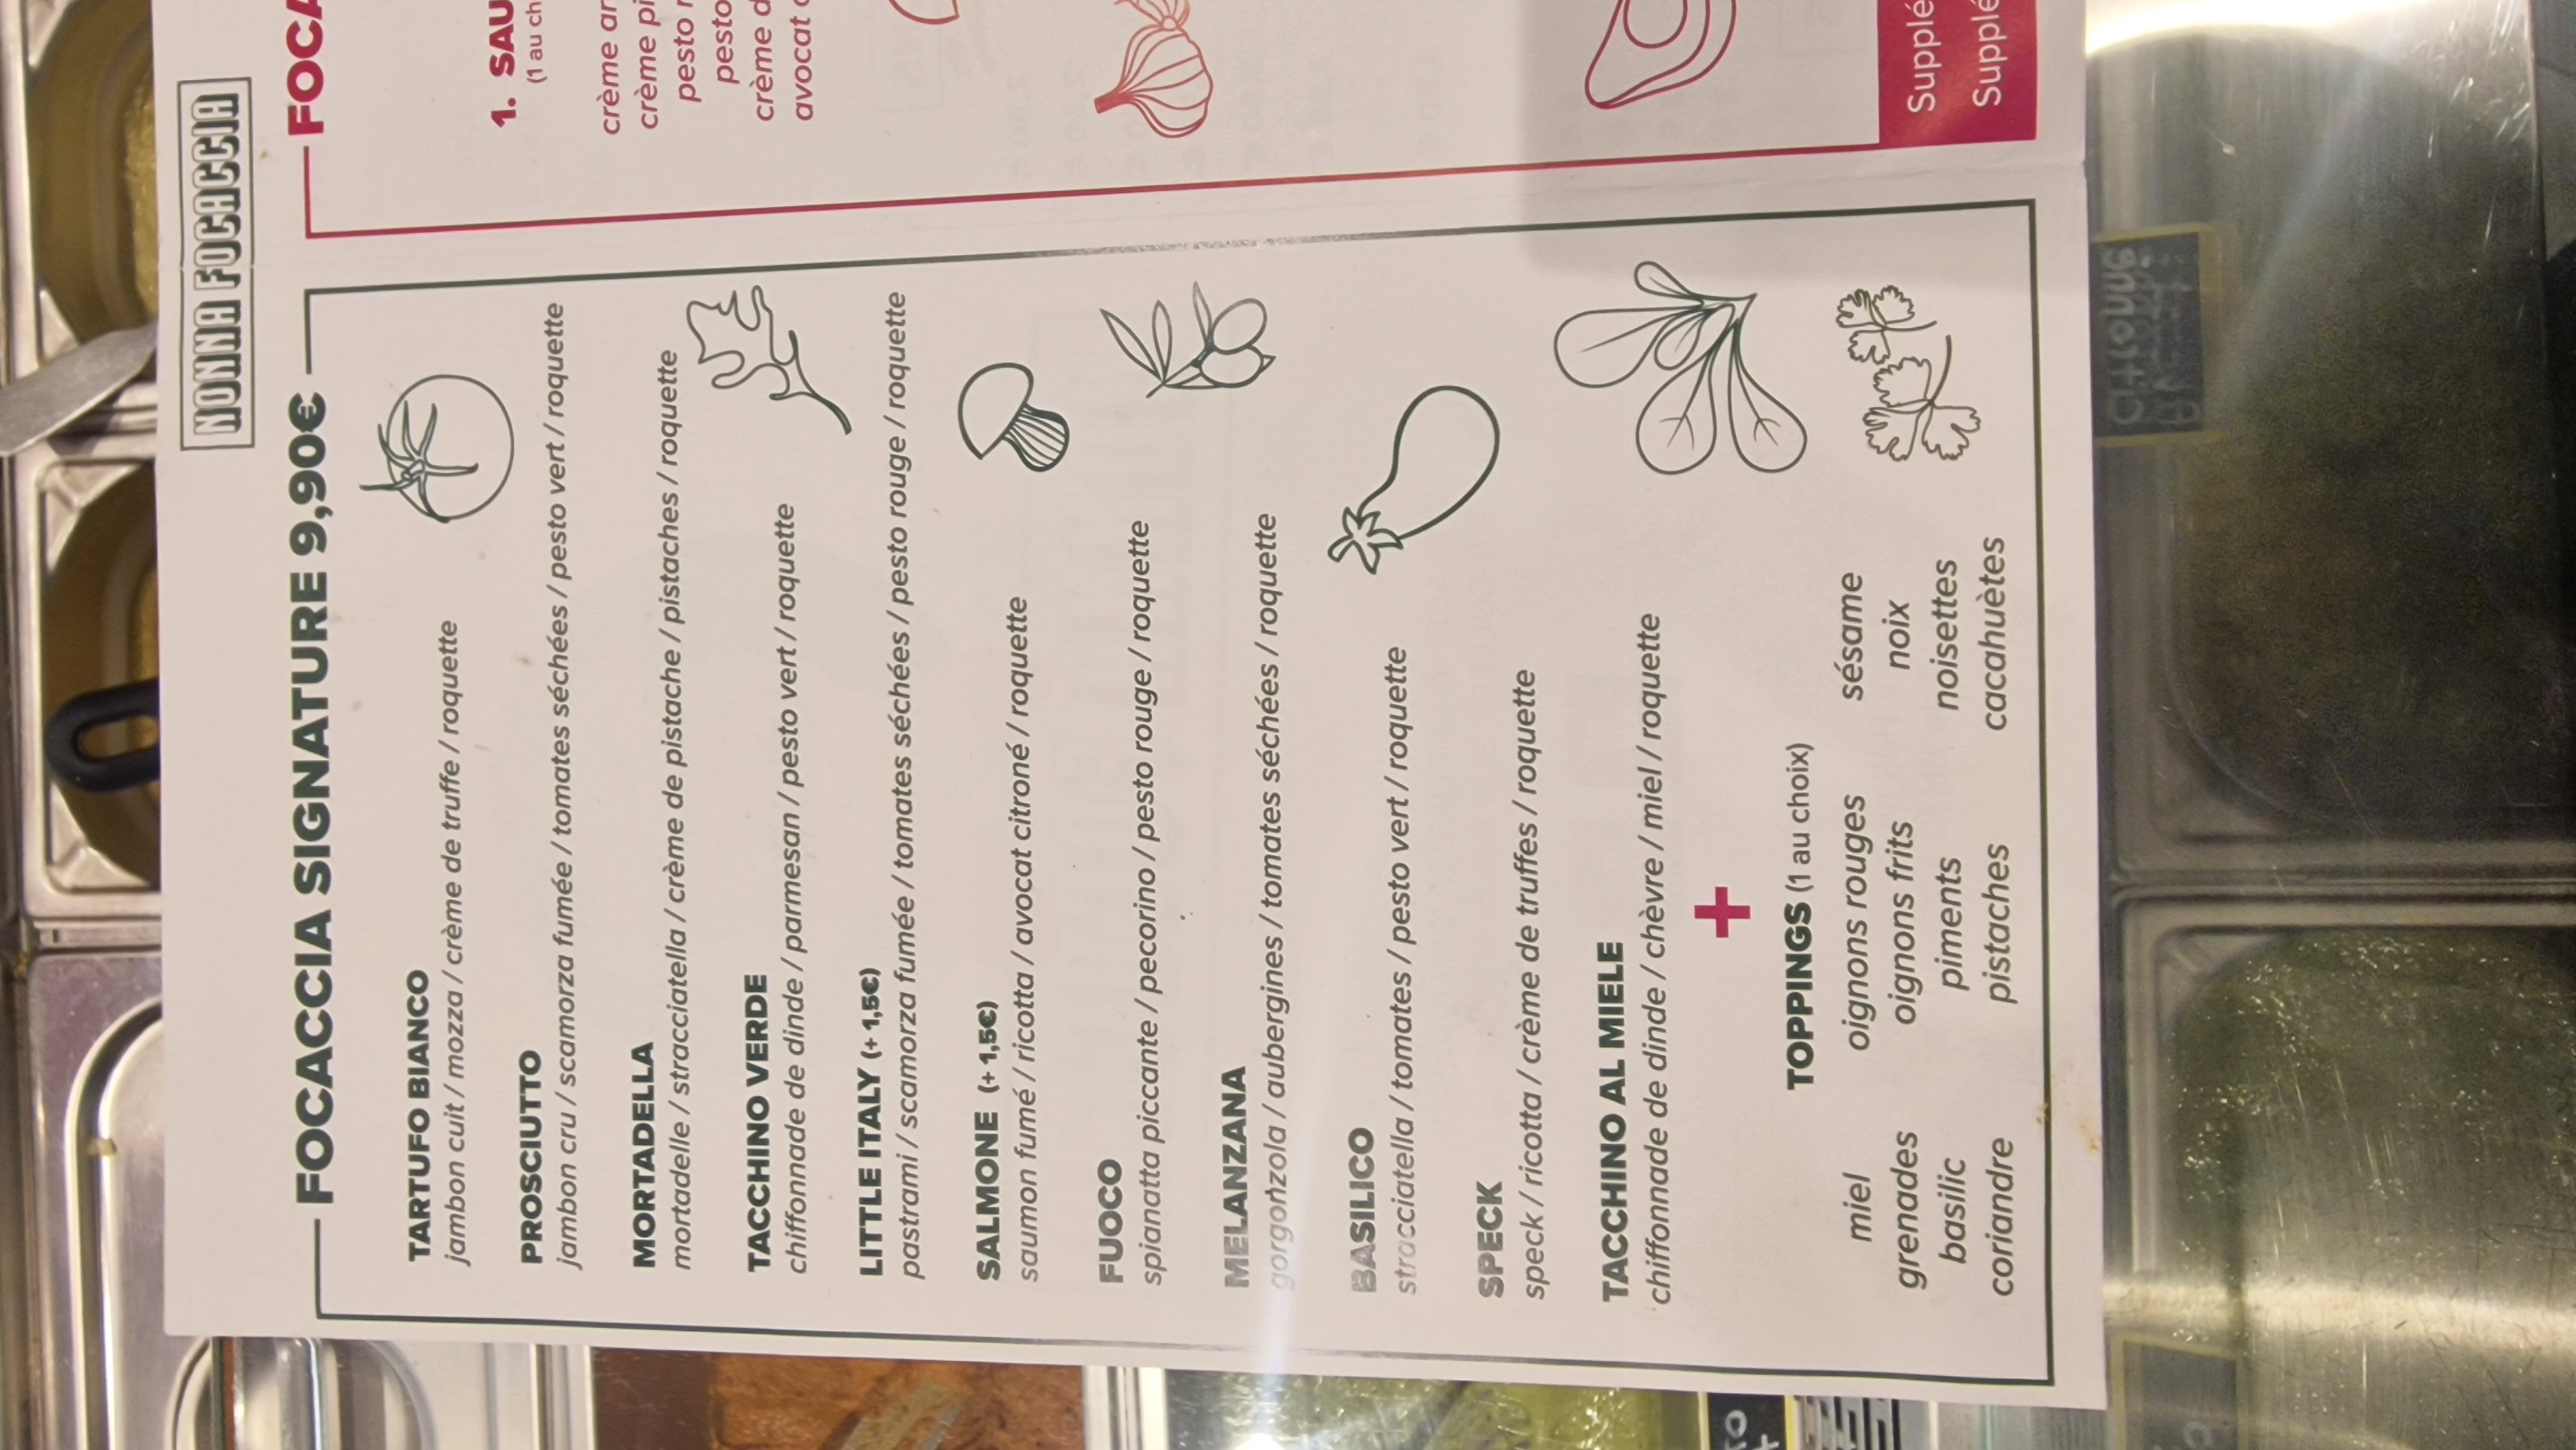 NONNA FOCACCIA
FOCACCIA SIGNATURE 9,90€
TARTUFO BIANCO
jambon cuit / mozza / crème de truffe / roquette
PROSCIUTTO
jambon cru / scamorza fumée / tomates séchées / pesto vert / roquette
MORTADELLA
mortadelle / stracciatella / crème de pistache / pistaches / roquette
TACCHINO VERDE
chiffonnade de dinde / parmesan / pesto vert / roquette
LITTLE ITALY (+ 1,5€)
pastrami / scamorza fumée / tomates séchées / pesto rouge / roquette
SALMONE (+ 1,5€)
saumon fumé / ricotta / avocat citroné / roquette
FUOCO
spianatta piccante / pecorino / pesto rouge / roquette
MELANZANA
gorgonzola / aubergines / tomates séchées / roquette
BASILICO
stracciatella / tomates / pesto vert / roquette
SPECK
speck / ricotta / crème de truffes / roquette
TACCHINO AL MIELE
chiffonnade de dinde / chèvre / miel / roquette
+
TOPPINGS (1 au choix)
miel oignons rouges sésame
grenades oignons frits noix
basilic piments noisettes
coriandre pistaches cacahuètes
FOCA
1. SAU
(1 au ch
crème ar
crème pi
pesto r
pesto
crème d
avocat c
Supplé
Supplé